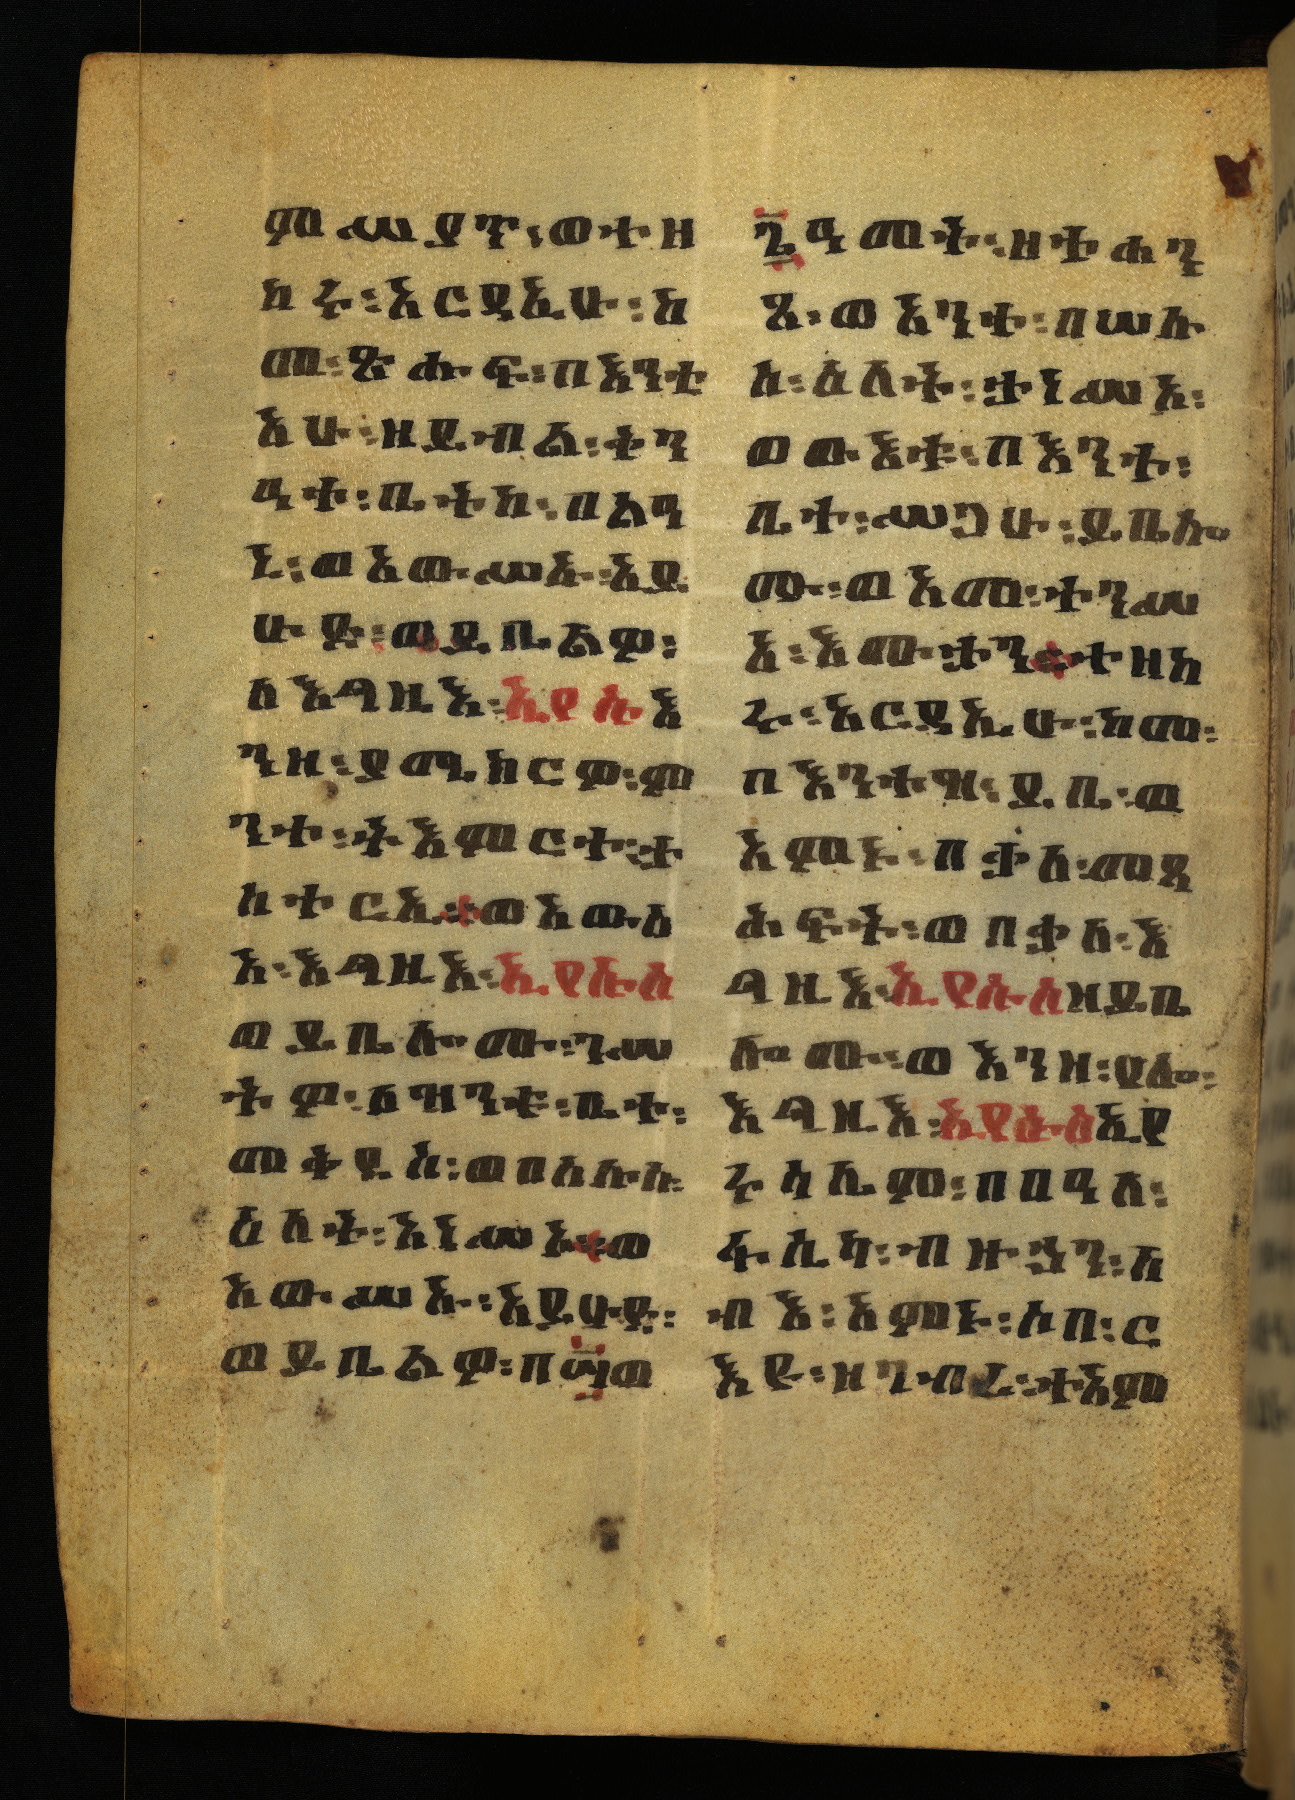 ምሠያጥ፡ወተዘ
ከሩ፡አርዳኢሁ፡ከ
መ፡ጽሑፍ፡በእንቲ
አሁ፡ዘይብል፡ቅን
ዓተ፡ቤትከ፡በልዓ
ኒ፡ወአውሥኡ፡አይ
ሁድ፡ወይቤልዎ፡
ለእግዚእ፡ኢየሱስ
ንዘ፡ያሜክርዎ፡ም
ንተ፡ትእምርተ፡ታ
ሌተርኢ፡ወአውሥ
አ፡እግዚእ፡ኢየሱስ
ወይቤሎሙ፡ንሠ
ትዎ፡ለዝንቱ፡ቤተ፡
መቅደስ፡ወበሰሉስ፡
ዕለት፡አነሥኦ፡ወ
አውሥኡ፡አይሁድ፡
ወይቤልዎ፡በ፵ወ
፮ዓመት፡ዘተሐን
ጸ፡ወአንተ፡በሠሉ
ስ፡ዕለት፡ታነሥኦ፡
ወውእቱ፡በእንተ፡
ቤተ፡ሥጋሁ፡ይቤሎ
ሙ፡ወአመ፡ተንሥ
አ፡እሙታን፡ተዘከ
ሩ፡አርዳኢሁ፡ከመ፡
በእንተዝ፡ይቤ፡ወ
አምኑ፡በቃለ፡መጻ
ሕፍት፡ወበቃለ፡እ
ግዚእ፡ኢየሱስ፡ዘይቤ
ሎሙ፡ወእንዘ፡ሀሎ፡
እግዚእ፡ኢየሱስ፡ኢየ
ሩሳሌም፡በበዓለ፡
ፋሲካ፡ብዙኃን፡ሰ
ብእ፡እምኑ፡ሶበ፡ር
እዩ፡ዘገብረ፡ተአም